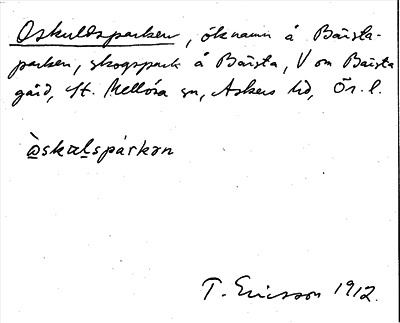 Oskuldsparken, öknamn å Baista-
parken, skogspark å Baista, V om Baista
gård, St. Mellösa sn, Askers hd, Ör. l.
òskulspárkən
T. Ericsson 1912.